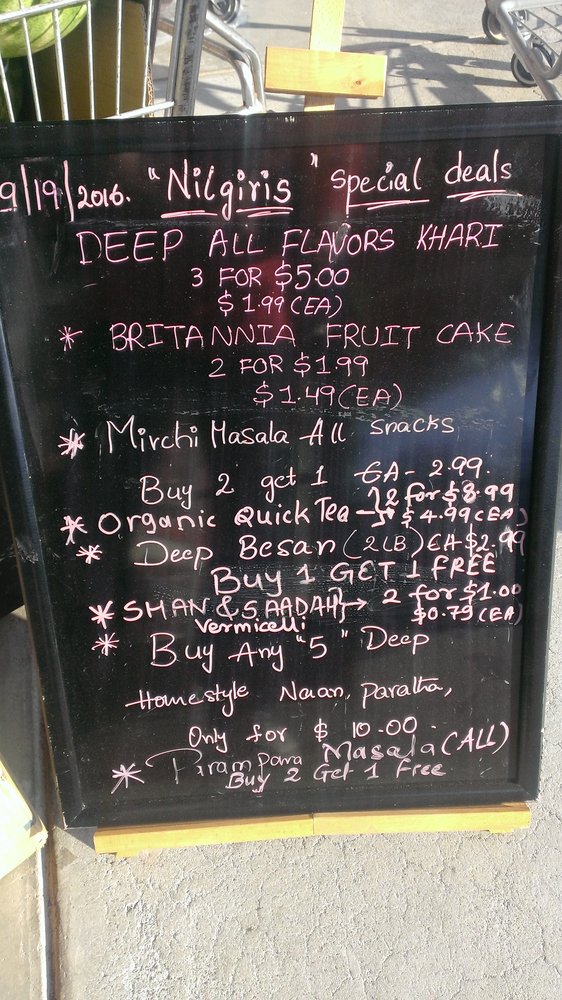 9/19/2016. "Nilgiris" special deals
DEEP ALL FLAVORS KHARI
3 FOR $5.00
$1.99 (EA)
* BRITANNIA FRUIT CAKE
2 FOR $1.99
$1.49 (EA)
* Mirchi Masala All snacks
Buy 2 get 1 EA- 2.99.
* Organic Quick Tea → 2 for $8.99
$4.99 (EA)
* Deep Besan (2LB) EA $2.99
Buy 1 GET 1 FREE
* SHAN & SAADAH} → 2 for $1.00
Vermicelli $0.79 (EA)
* Buy Any "5" Deep
Homestyle Naan, Paratha,
Only for $ 10.00.
* Parampara Masala (ALL)
Buy 2 Get 1 Free